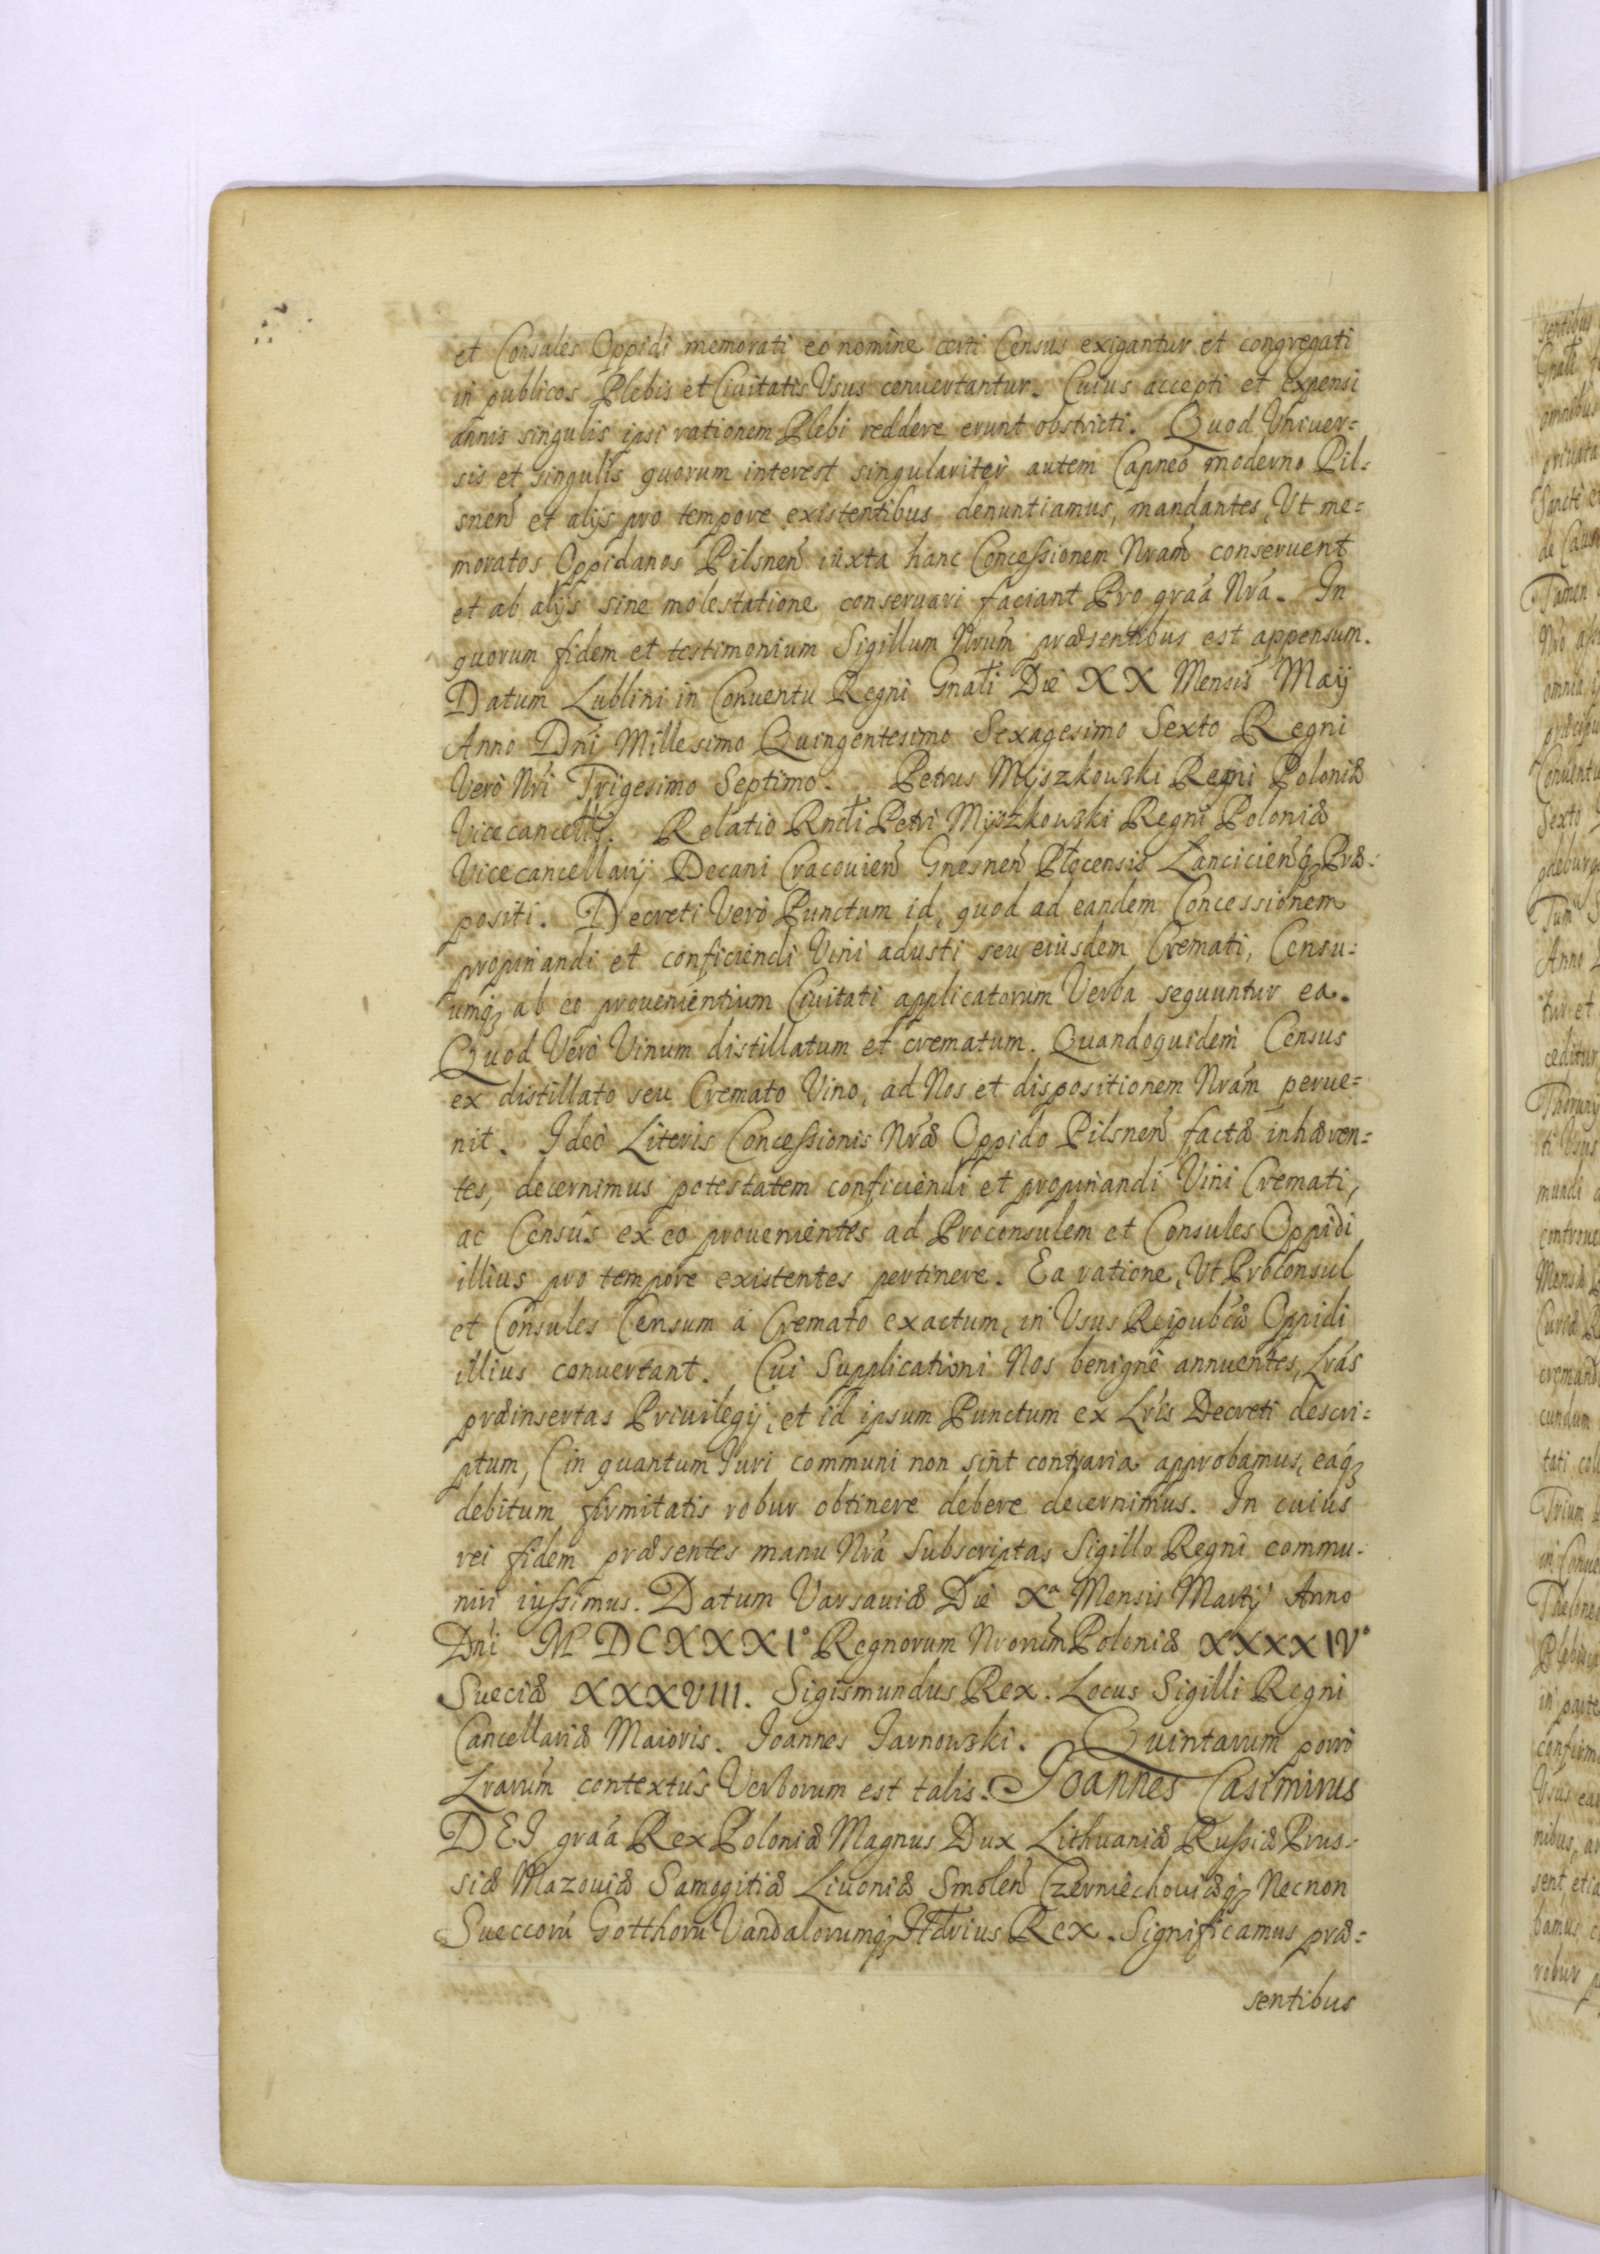 et Consules Oppidi memorati eo nomine certi Census exigantur et congregati
in publicos Plebis et Ciuitatis Vsus conuertantur. Cuius accepti et expensi
annis singulis ipsi rationem Plebi reddere erunt obstricti. Quod Vniuer=
sis et singulis quorum interest singulariter autem Capneo moderno Pil=
snen̄ et alijs pro tempore existentibus denuntiamus, mandantes, Vt me=
moratos Oppidanos Pilsnen̄ iuxta hanc Concessionem Nrām conseruent
et ab alijs sine molestatione conseruari faciant Pro grāa Nrā. In
quorum fidem et testimonium Sigillum Nrūm præsentibus est appensum.
Datum Lublini in Conuentu Regni Gnałi Die XX Mensis Maij
Anno Dni Millesimo Quingentesimo Sexagesimo Sexto Regni
Verò Nri Trigesimo Septimo. Petrus Myszkowski Regni Poloniæ
Relatio Rndi Petri Myszkowski Regni Poloniæ
Vicecancellarij Decani Cracouien̄ Gnesnen̄ Płocensis Lancicien̄q Præ=
positi. Decreti Verò Punctum id, quod ad eandem Concessionem
propinandi et conficiendi Vini adusti seu eiusdem Cremati, Censu=
umq ab eo prouenientium Ciuitati applicatorum Verba sequuntur ea.
Quod Verò Vinum distillatum et crematum. Quandoquidem Census
ex distillato seu Cremato Vino, ad Nos et dispositionem Nrām perue=
nit. Ideò Literis Concessionis Nræ Oppido Pilsnen̄ factæ inhæren=
tes, decernimus potestatem conficiendi et propinandi Vini Cremati,
ac Censûs ex eo prouenientes ad Proconsulem et Consules Oppidi
illius pro tempore existentes pertinere. Ea ratione, Vt Proconsul
et Consules Censum à Cremato exactum, in Vsus Reipubcæ Oppidi
illius conuertant. Cui Supplicationi Nos benignè annuentes, Lrás
præinsertas Priuilegij, et id ipsum Punctum ex Lrīs Decreti descri=
ptum, (in quantum Iuri communi non sint contraria approbamus, eaq
debitum firmitatis robur obtinere debere decernimus. In cuius
rei fidem præsentes manu Nrā Subscriptas Sigillo Regni commu=
niri iussimus. Datum Varsauiæ Die Xa Mensis Martij Anno
Dni Mo DCXXXIo Regnorum Nrorūm Poloniæ XXXXIVo
Sueciæ XXXVIII. Sigismundus Rex. Locus Sigilli Regni
Cancellariæ Maioris. Ioannes Iarnowski. Quintarum porrò
Lrarūm contextûs Verborum est talis. Ioannes Casimirus
DEI grāa Rex Poloniæ Magnus Dux Lithuaniæ Russiæ Prus=
siæ Mazouiæ Samogitiæ Liuoniæ Smolen̄ Czerniechouiæq Necnon
Sueccorū Gotthorū Vandalorumq Hærius Rex. Significamus præ=
sentibus